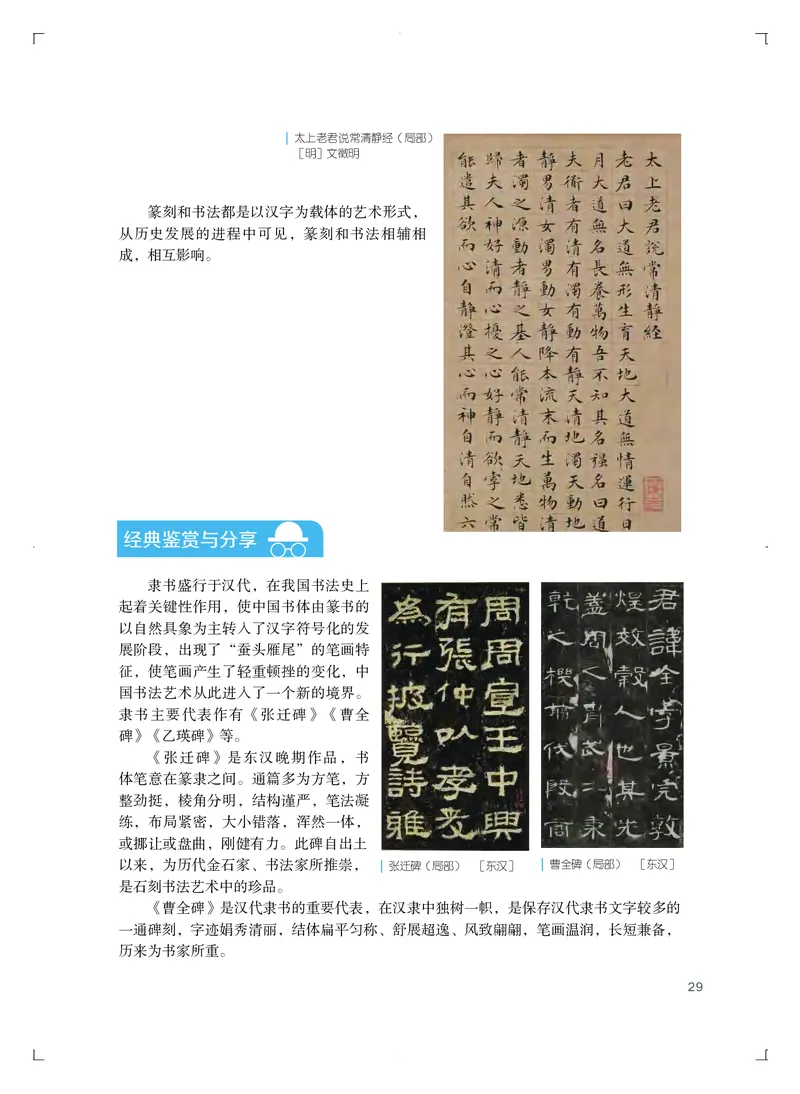 太上老君说常清静经（局部）
［明］文徵明
太上老君說常清靜經
老君曰大道無形生育天地大道無情運行日
月大道無名長養萬物吾不知其名强名曰道
夫衜者有清有濁有動有靜天清地濁天動地
靜男清女濁男動女靜降本流末而生萬物清
者濁之源動者靜之基人能常清靜天地悉皆
歸夫人神好清而心擾之心好靜而欲牽之常
能遣其欲而心自靜澄其心而神自清自然六
篆刻和书法都是以汉字为载体的艺术形式，
从历史发展的进程中可见，篆刻和书法相辅相
成，相互影响。
经典鉴赏与分享
隶书盛行于汉代，在我国书法史上
起着关键性作用，使中国书体由篆书的
以自然具象为主转入了汉字符号化的发
展阶段，出现了“蚕头雁尾”的笔画特
征，使笔画产生了轻重顿挫的变化，中
国书法艺术从此进入了一个新的境界。
隶书主要代表作有《张迁碑》《曹全
碑》《乙瑛碑》等。
《张迁碑》是东汉晚期作品，书
体笔意在篆隶之间。通篇多为方笔，方
整劲挺，棱角分明，结构谨严，笔法凝
练，布局紧密，大小错落，浑然一体，
或挪让或盘曲，刚健有力。此碑自出土
以来，为历代金石家、书法家所推崇，
是石刻书法艺术中的珍品。
周周宣王中興
有張仲以孝友
為行披覽詩雅
张迁碑（局部） ［东汉］
君諱全字景完敦
煌效穀人也其先
蓋周之胄武王秉
乾之機翦伐殷商
曹全碑（局部） ［东汉］
《曹全碑》是汉代隶书的重要代表，在汉隶中独树一帜，是保存汉代隶书文字较多的
一通碑刻，字迹娟秀清丽，结体扁平匀称、舒展超逸、风致翩翩，笔画温润，长短兼备，
历来为书家所重。
29